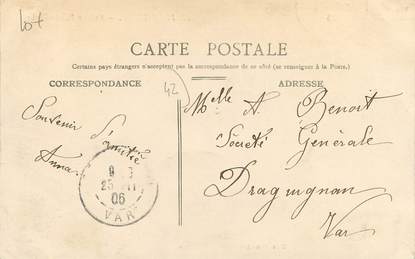 lot
CARTE POSTALE
Certains pays étrangers n'acceptent pas la correspondance de ce côté (se renseigner à la Poste).
CORRESPONDANCE
ADRESSE
42
Souvenir d'amitié
Anna
Melle A. Benoit
Société Générale
Draguignan
Var
25
06
VAR